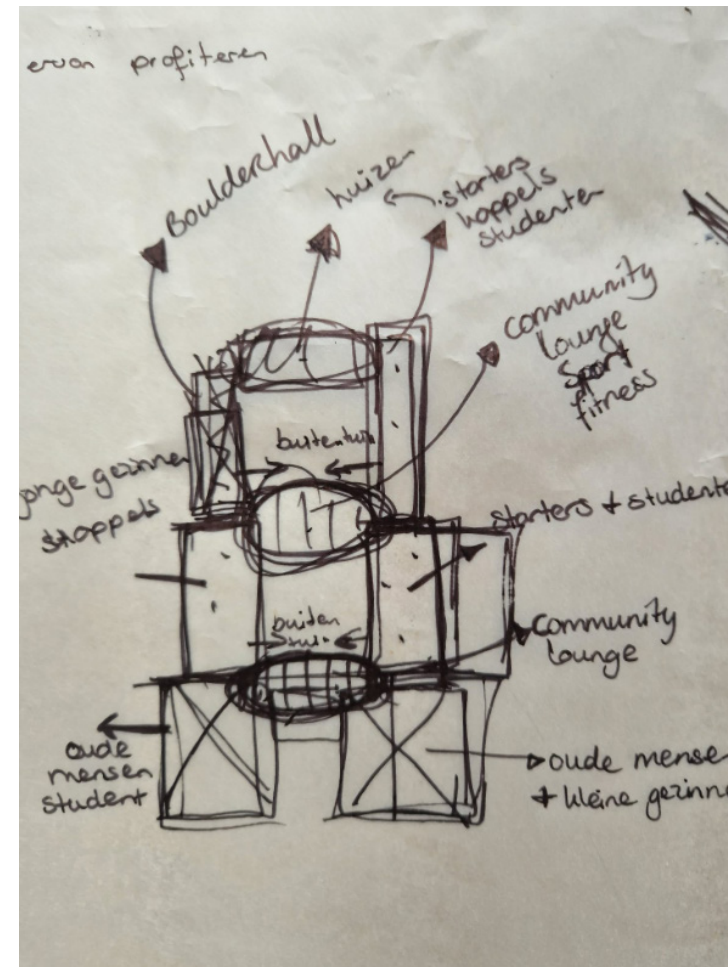 ervan profiteren
Boulderhall
huizen
starters
koppels
studenten
community
lounge
sport
fitness
buitentuin
jonge gezinnen
koppels
starters + studente
buiten
tuin
community
lounge
oude
mensen
student
oude mensen
+ kleine gezinne